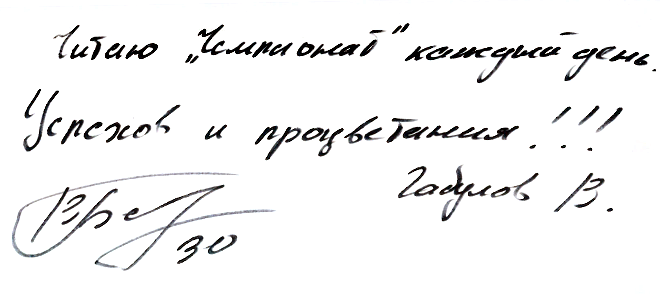 Читаю „Чемпионат" каждый день.
Успехов и процветания!!!
Габулов В.
30